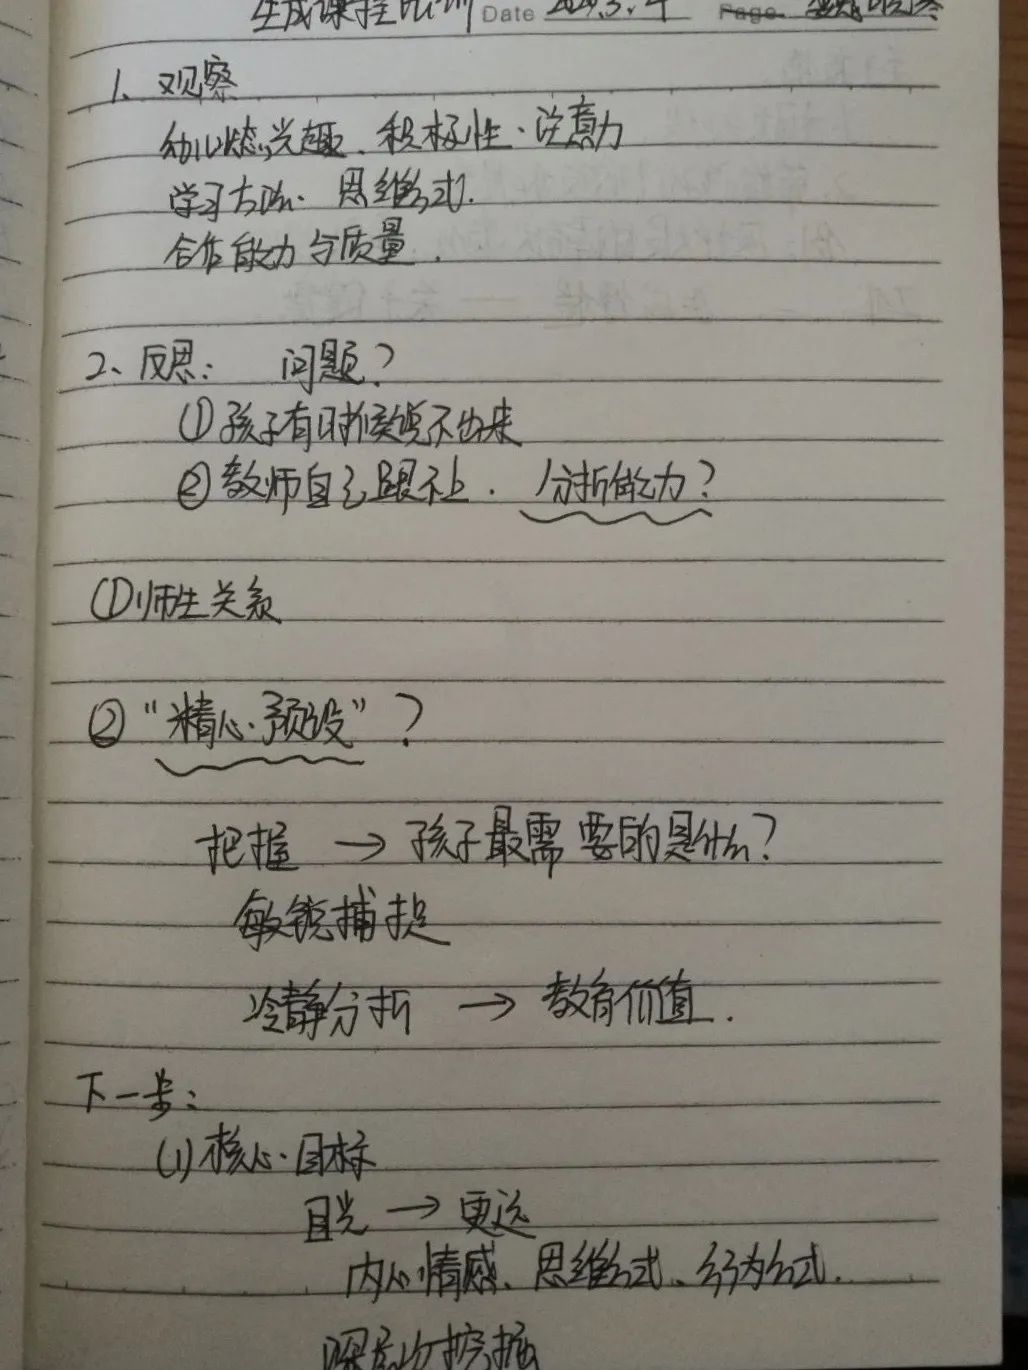 生成课程培训 Date 2020.3.4 Page
1、观察
幼儿状态、兴趣、积极性、注意力
学习方法、思维方式.
合作能力与质量.
2、反思： 问题？
①孩子有时候说不出来
②教师自己跟不上. 分析能力？
①师生关系
②“精心预设”？
把握 → 孩子最需要的是什么？
敏锐捕捉
冷静分析 → 教育价值.
下一步：
(1)核心目标
目光 → 更远
内心情感、思维方式、行为方式.
深层次挖掘